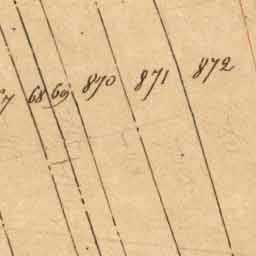 68 69 870 871 872